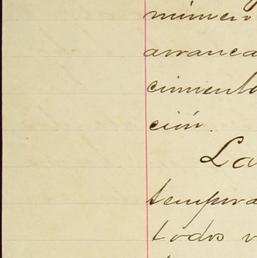 número
arranca
cimiento
ción.
La
tempora
todos